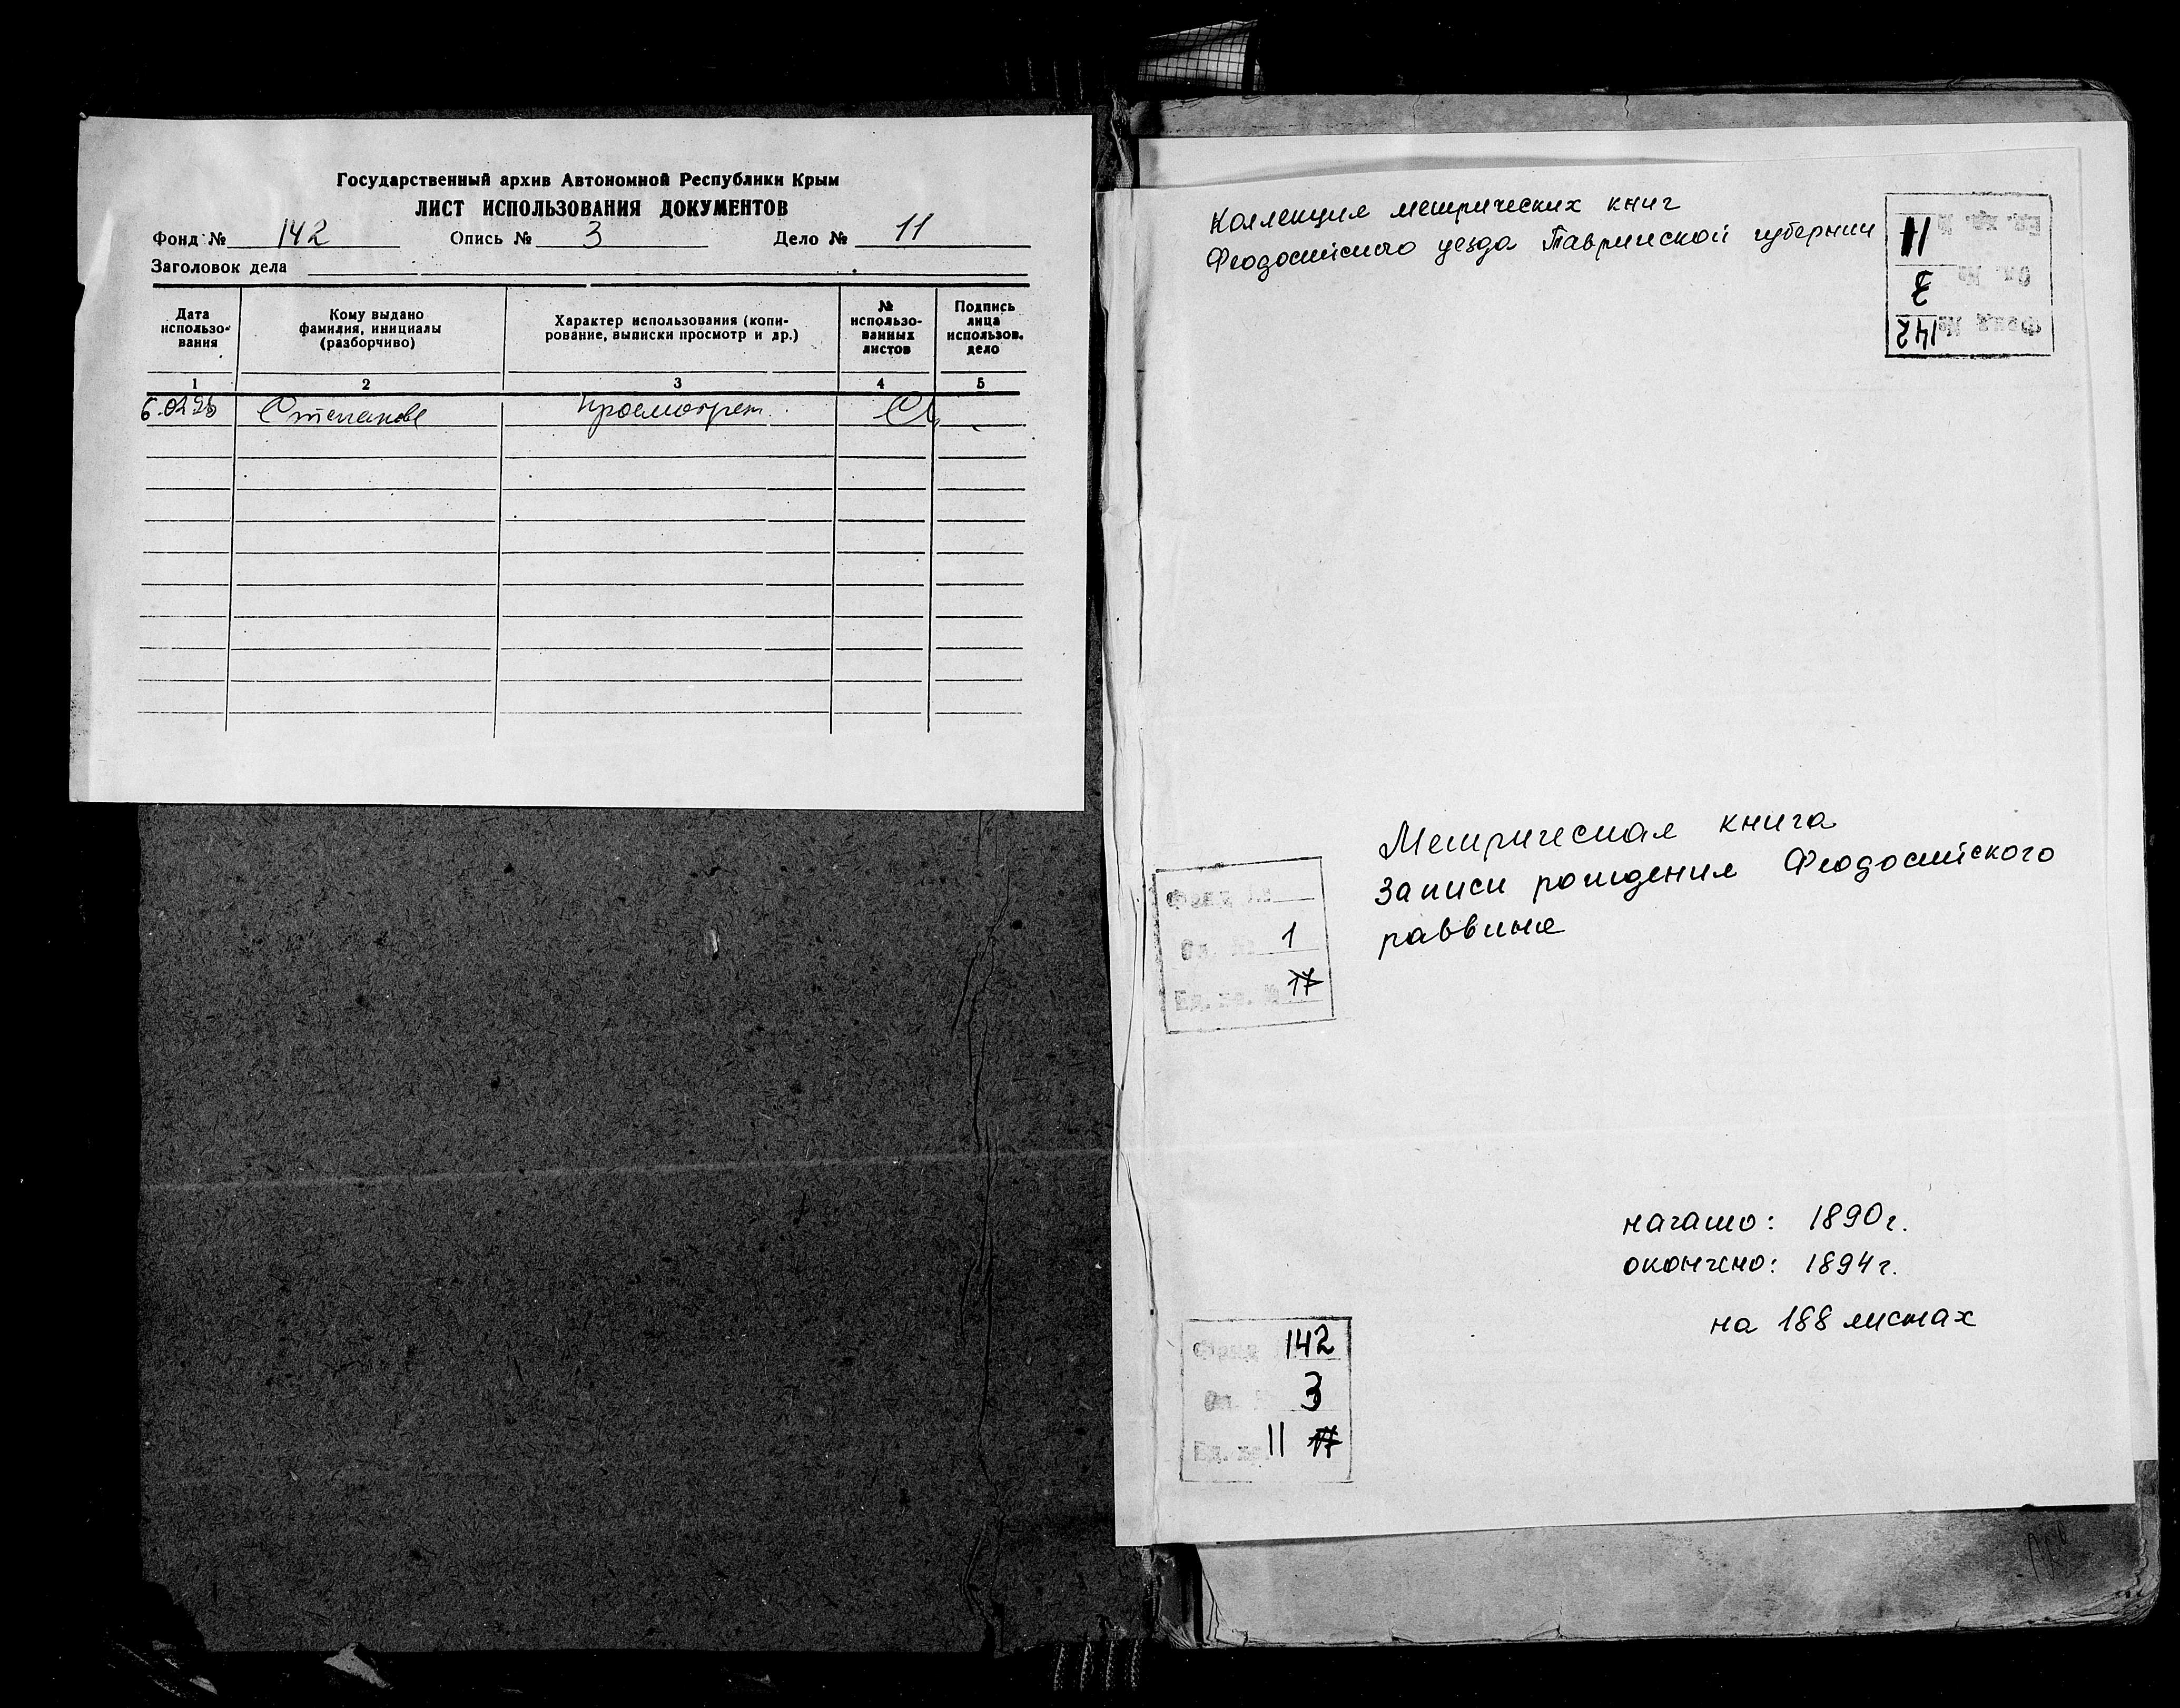 Государственный архив Автономной Республики Крым
ЛИСТ ИСПОЛЬЗОВАНИЯ ДОКУМЕНТОВ
Фонд № 142 Опись № 3 Дело № 11
Заголовок дела
Дата использо-вания
Кому выдано фамилия, инициалы (разборчиво)
Характер использования (копи-рование, выписки просмотр и др.)
№ использо-ванных листов
Подпись лица использов. дело
1 2 3 4 5
Степанова просмотрен
Коллекция метрических книг
Феодосийского уезда Таврической губернии
Ед. хр. № 11
Оп. № 3
Фонд № 142
Метрическая книга
Записи рождения Феодосийского
раввина
Фонд №
Оп. № 1
Ед. хр. № 17
начато: 1890г.
окончено: 1894г.
на 188 листах
Фонд 142
Оп. № 3
Ед. хр. 11 17